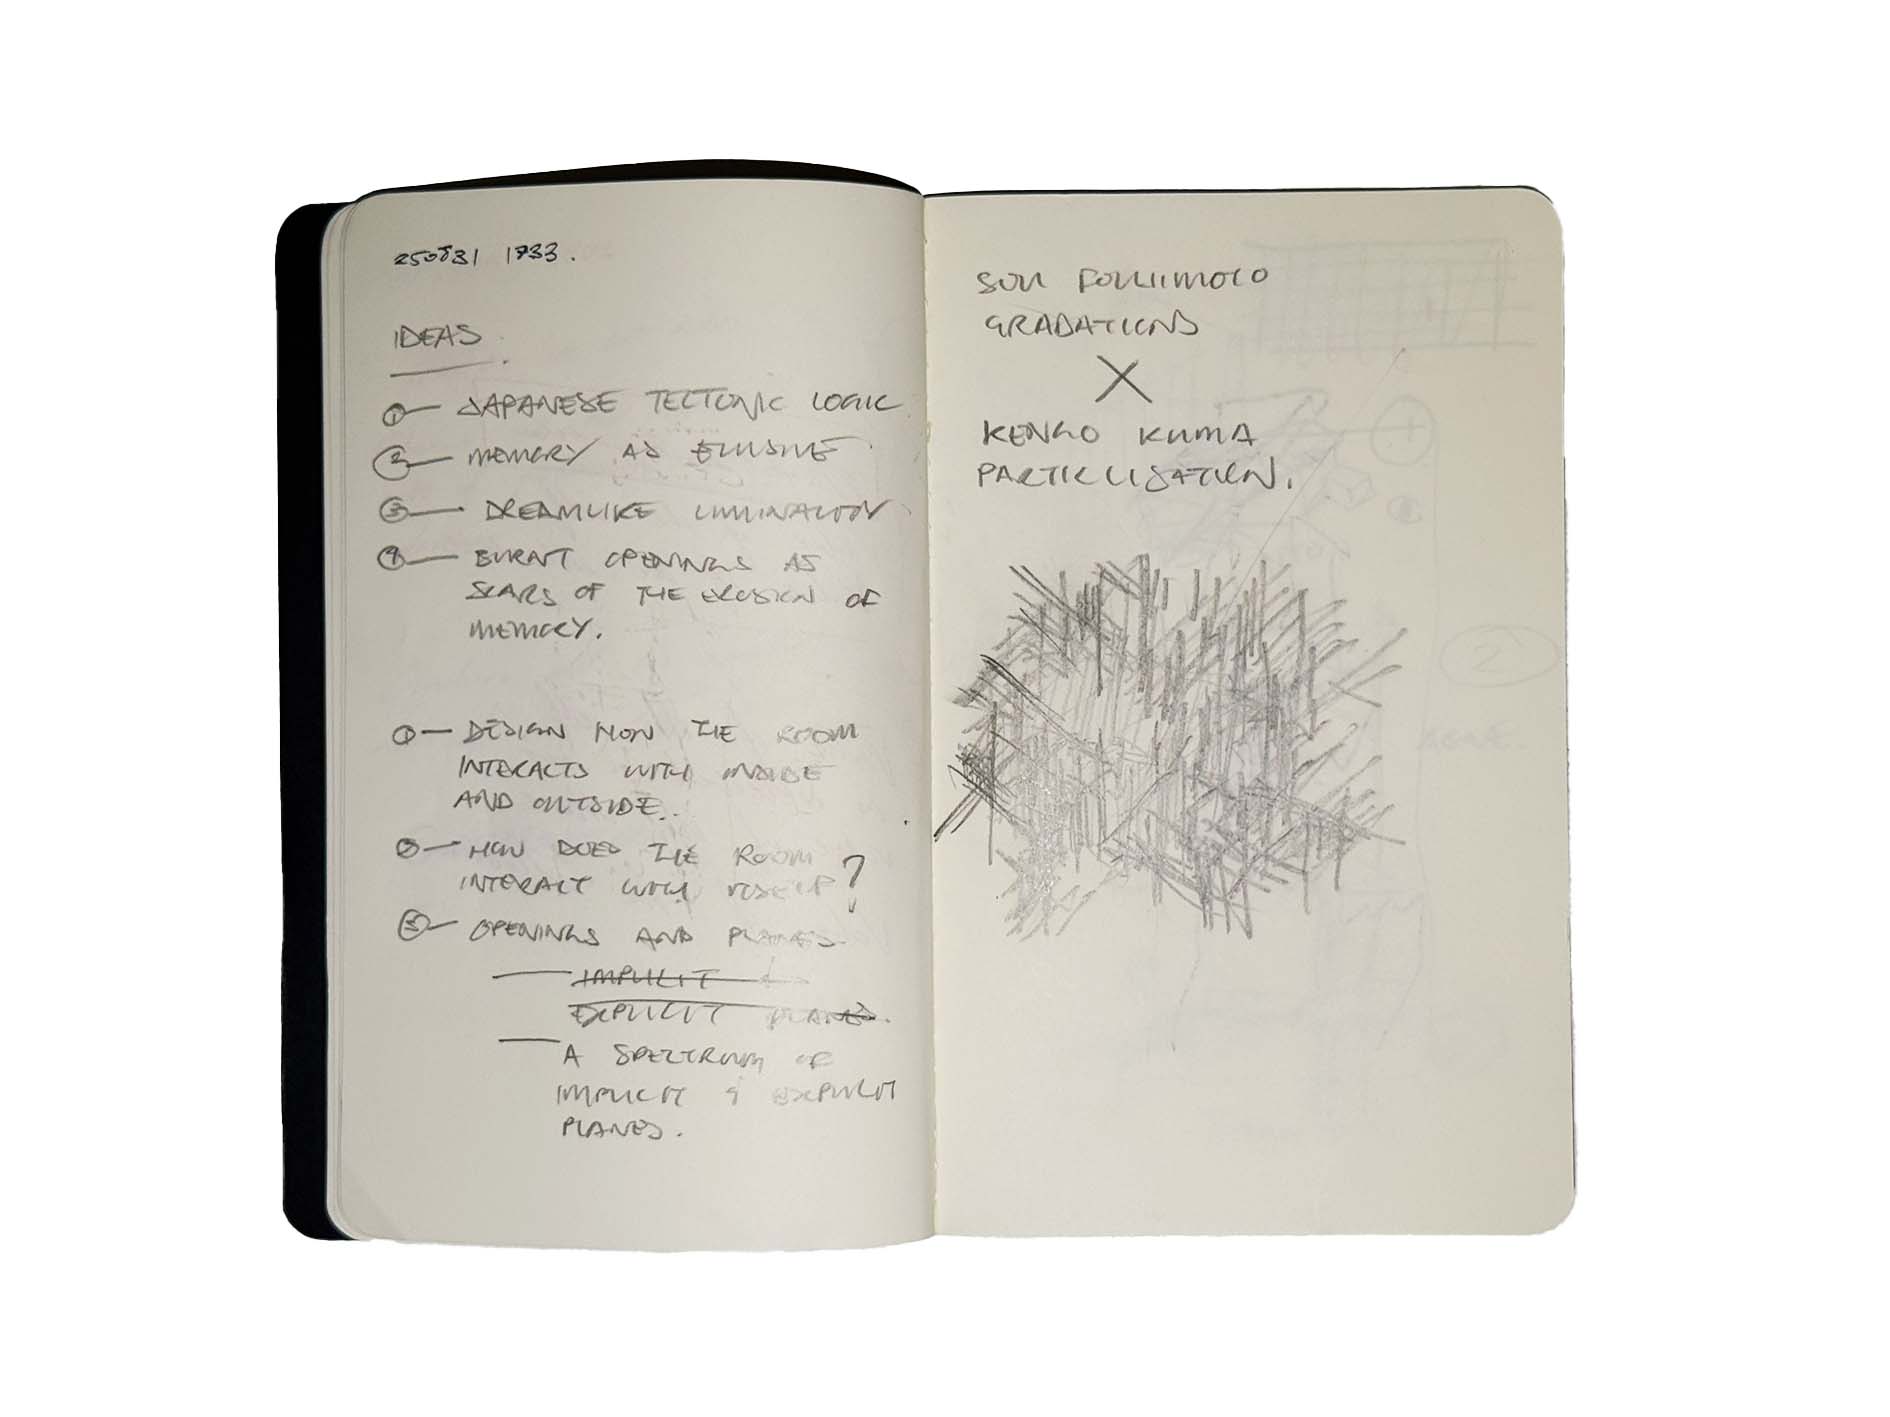 250831 1733.
IDEAS.
① — JAPANESE TECTONIC LOGIC
② — MEMORY AS ELUSIVE
③ — DREAMLIKE LIMINALITY
④ — BURNT OPENINGS AS
SCARS OF THE EROSION OF
MEMORY.
① — DESIGN HOW THE ROOM
INTERACTS WITH INSIDE
AND OUTSIDE..
② — HOW DOES THE ROOM
INTERACT WITH ITSELF?
③ — OPENINGS AND PLANES
— IMPLICIT &
EXPLICIT PLANES.
— A SPECTRUM OF
IMPLICIT & EXPLICIT
PLANES.
SOU FOUJIMOTO
GRADATIONS
X
KENGO KUMA
PARTICLISATION.